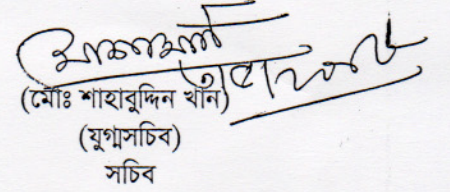 (মোঃ শাহাবুদ্দিন খান)
(যুগ্মসচিব)
সচিব